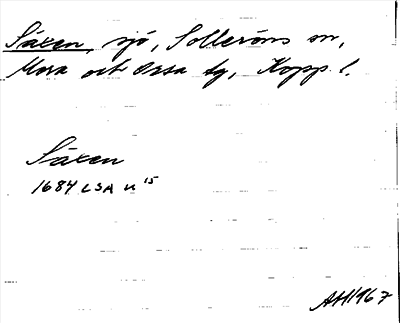 Säxen, sjö, Solleröns sn,
Mora och Orsa tg, Kopp. l.
Säxen
1684 LSA u 15
AH 1967